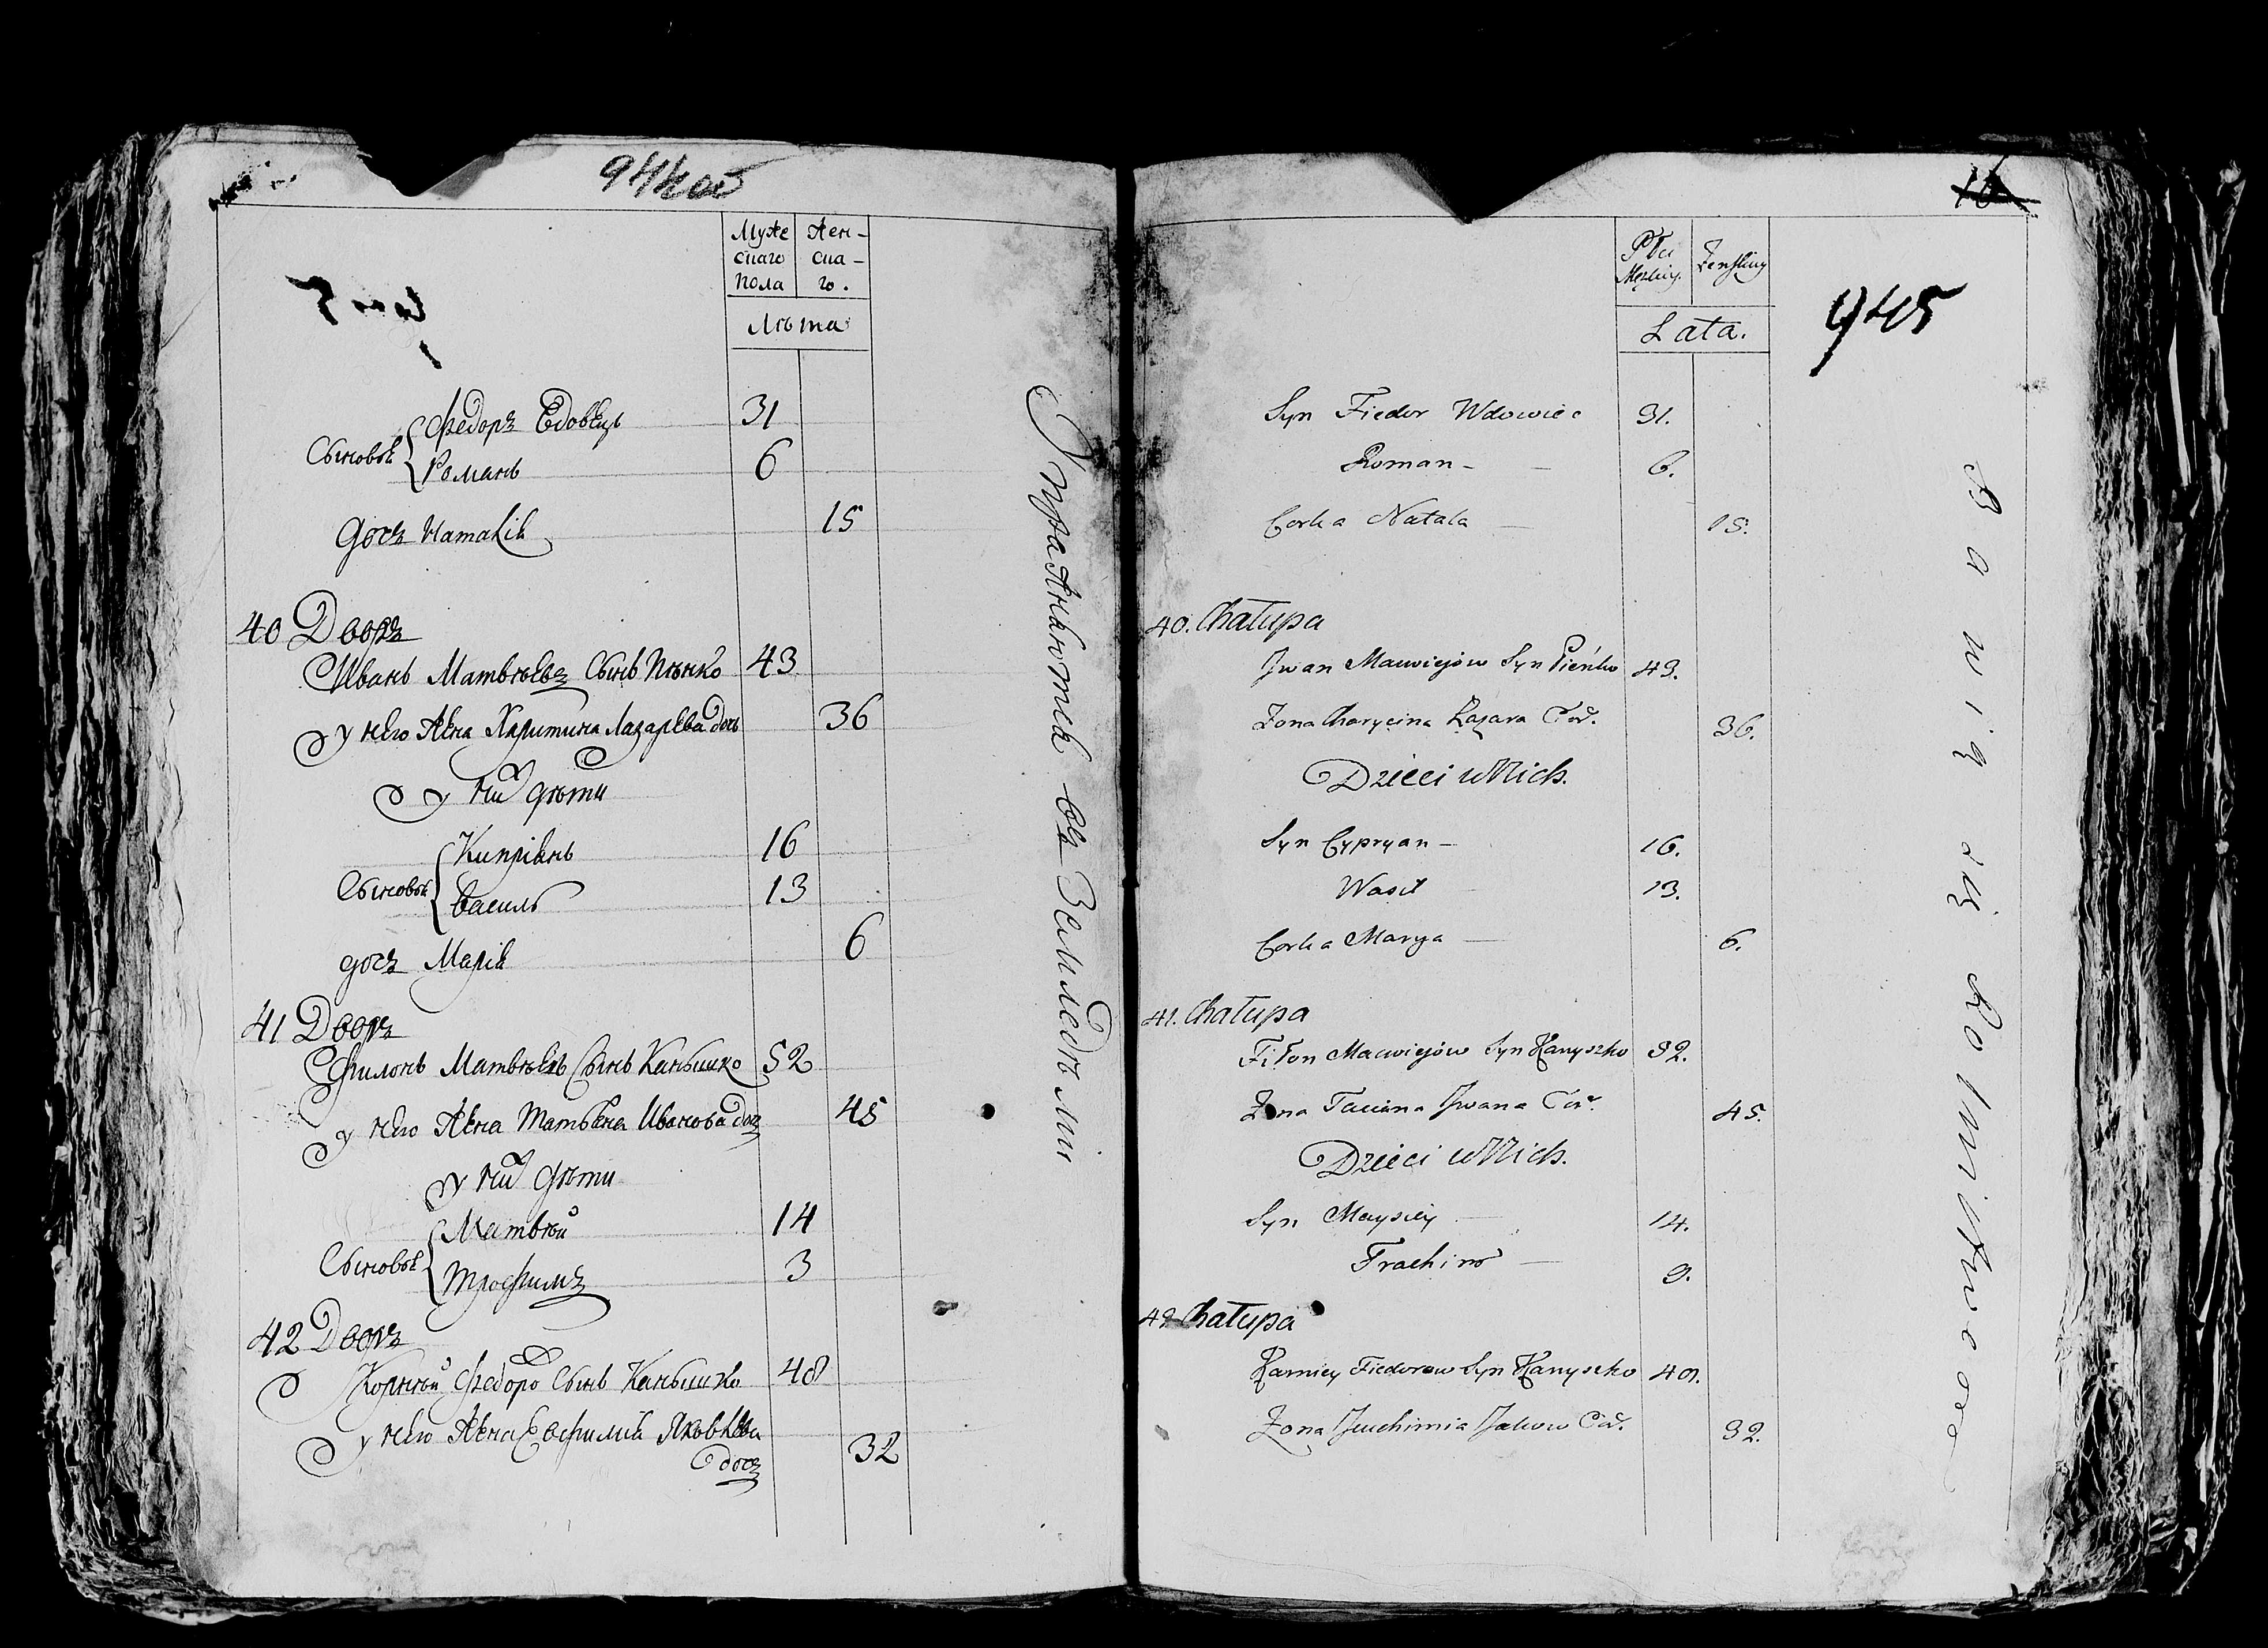 944 об
Муже Жен-
скаго ска-
пола го.
Лѣта
Сыновья Федоръ Вдовецъ 31
Романъ 6
дочь Наталія 15
40 Дворъ
Иванъ Матвѣевъ Сынъ Пѣнко 43
у него Жена Харитина Лазарева дочь 36
у них дѣти
Сыновья Кипріянъ 16
Василь 13
дочь Марія 6
41 Дворъ
Филонъ Матвѣевъ Сынъ Канышко 52
у него Жена Татьяна Иванова дочь 45
у них дѣти
Сыновья Матвѣй 14
Трофимъ 3
42 Дворъ
Корнѣй Федоро Сынъ Канышко 48
у него Жена Евфимія Яковлева
дочь 32
Упражняютея въ Земледѣлии
945
Płci
Męzkiey. Zenskiey
Lata.
Syn Fiedor Wdowiec 31.
Roman - 6.
Corka Natala 15.
40. Chałupa
Jwan Maciejów Syn Pieńko 43.
Zona Charycina Łazara Cór. 36.
Dzieci u Nich.
Syn Cypryan - 16.
Wasil 13.
Corka Marya 6.
41. Chałupa
Fiłon Maciejów Syn Kanyszko 52.
Zona Taciana Jwana Cór. 45.
Dzieci u Nich.
Syn Maysiey 14.
Trachim 3.
42 Chałupa
Karniey Fiedorow Syn Kanyszko 48.
Zona Jeuchimia Jakow Cór. 32.